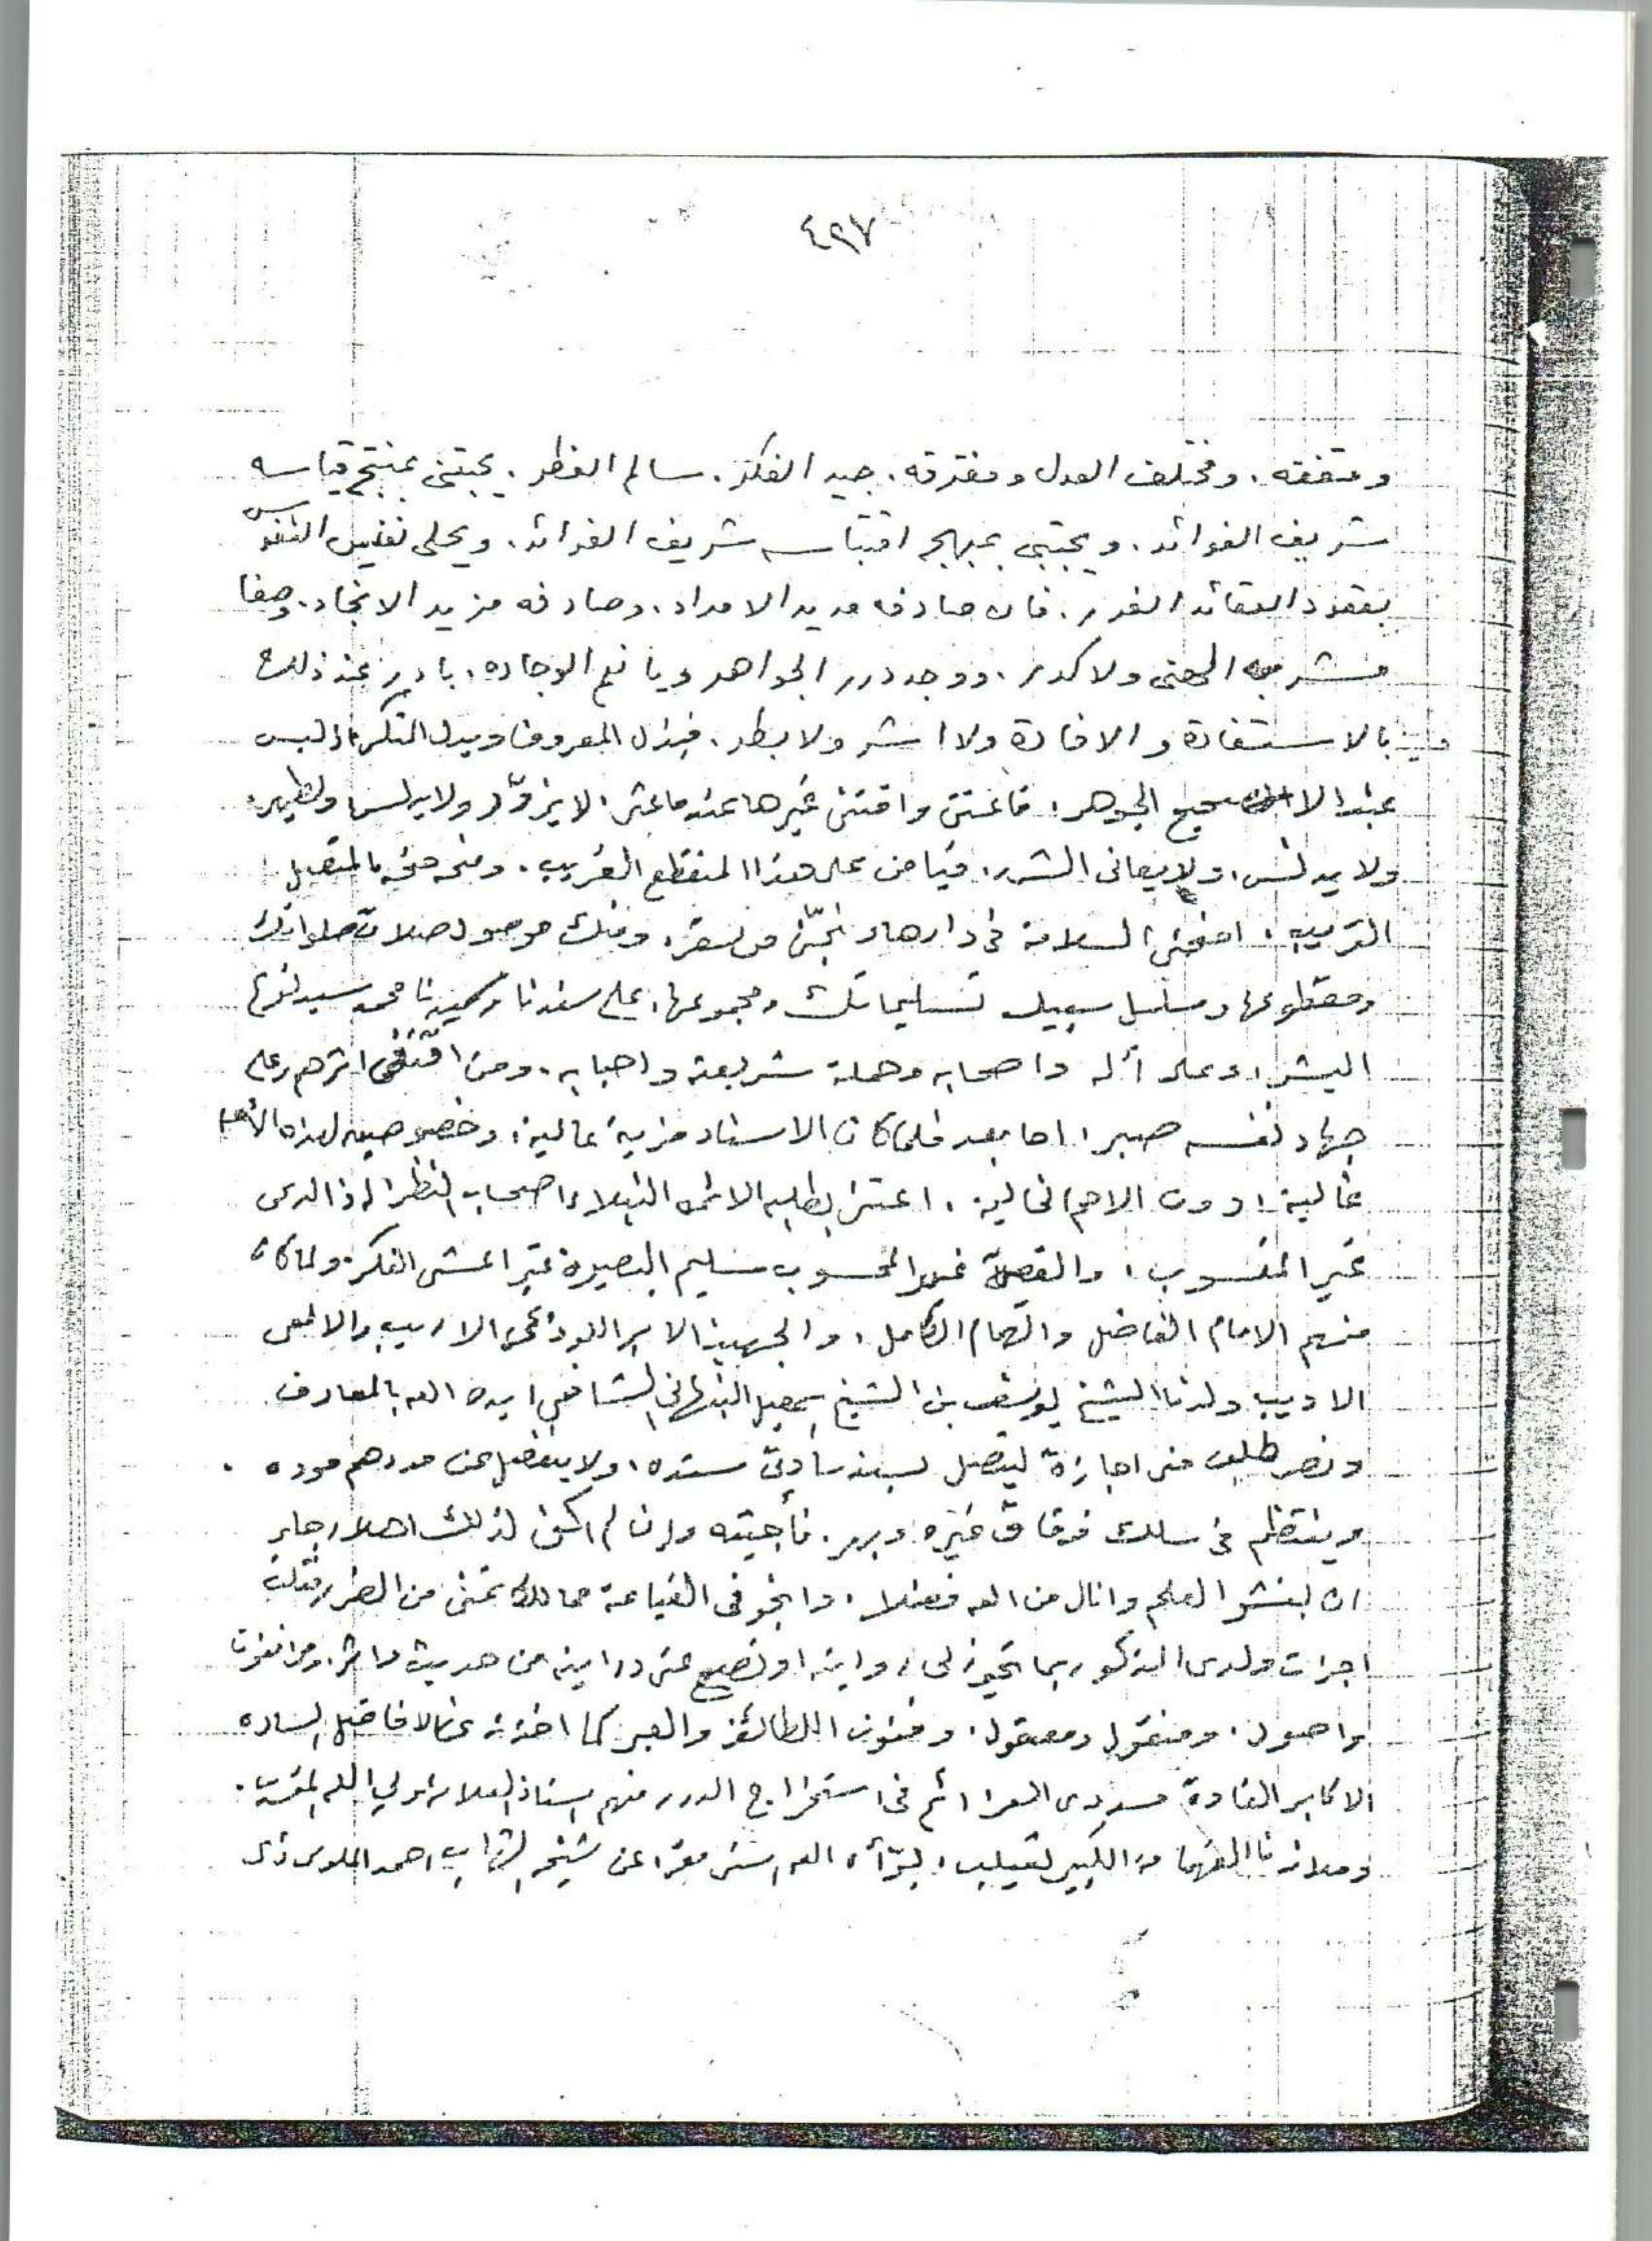 ٤٩٧
ومتفقه . ومختلف العدل ومفترقه . جيد الفكر . سالم الفطر . يجتني بمنتج قياسه
شريف الفوائد . ويجتبي بمبهج اقتباسه شريف الفرائد . ويحلى نفايس النفوس
بعقود العقائد الغرر . فان صادفه مديد الامداد . وصادفه مزيد الانجاد . وصفا
مشربه الهني ولا كدر . ووجد درر الجواهر ويا نعم الوجاده . بادر عند ذلك
بالاستفادة والافادة ولا اشر ولا بطر . فبذل المعروف وبدل النكر اذ ليس
عنده الا صحيح الجوهر . فاغتنى واقتنى غيرها عندما عثر . لا يزوّر ولا يدلس
ولا يدنس ، ولا يعانى الشرر . فيا من على هذا المنقطع الغريب . ومنحه بالمتصل
القريب . امنحني السلامة في دارها ونجّني من سقر . ومنك موصول صلات صلواتك
ومقطوعها ومسلسل سبيل تسليماتك ومجموعها . على سندنا وسيدنا محمد سيد
البشر ، وعلى آله واصحابه وحملة شريعته واحبابه . ومن اقتفى اثرهم وعلى
جهاد نفسه صبر . اما بعد فلما كان الاسناد مزية عالية . وخصوصيه لهذه الأمة
غالية . دون الامم الخالية . اعتنى بطلبه الائمة النبلاء اصحاب النظر اذ الدعى
غير المنسوب . والقصى غير المحسوب سليم البصيرة غير اعشى الفكر . ولما كان
منهم الامام الفاضل والهمام الكامل . والجهبذ الابر اللوذعى الاريب والالمعى
الاديب ولدنا الشيخ يوسف بن الشيخ اسمعيل النبهاني الشافعي ايده الله بالمعارف
ونصر طلب منى اجازة ليتصل بسند ساداتى سنده ، ولا ينفصل عن مددهم مدده .
وينتظم في سلك فوقاق غيره وبرر . فأجبته وان لم اكن لذلك اهلا رجاء
ان ينشر العلم وانال من الله فضلا . وانجو في القيامة مما للكاتمين من الضرر فقلت
اجزت ولدى المذكور بما تجوز لى روايته او تصح عنى درايته من حديث واثر . ومن فروع
واصول . ومنقول ومعقول . وفنون اللطائف والعبر كما اخذته عن الافاضل الساده
الاكابر القادة مسددى العزائم في استخراج الدرر منهم استاذنا العلامة ولي الله المقرب .
وملاذنا الفهامة الكبير ثعيلب . بوّأه الله اسنى مقر . عن شيخه الشهاب احمد الملوى ذى